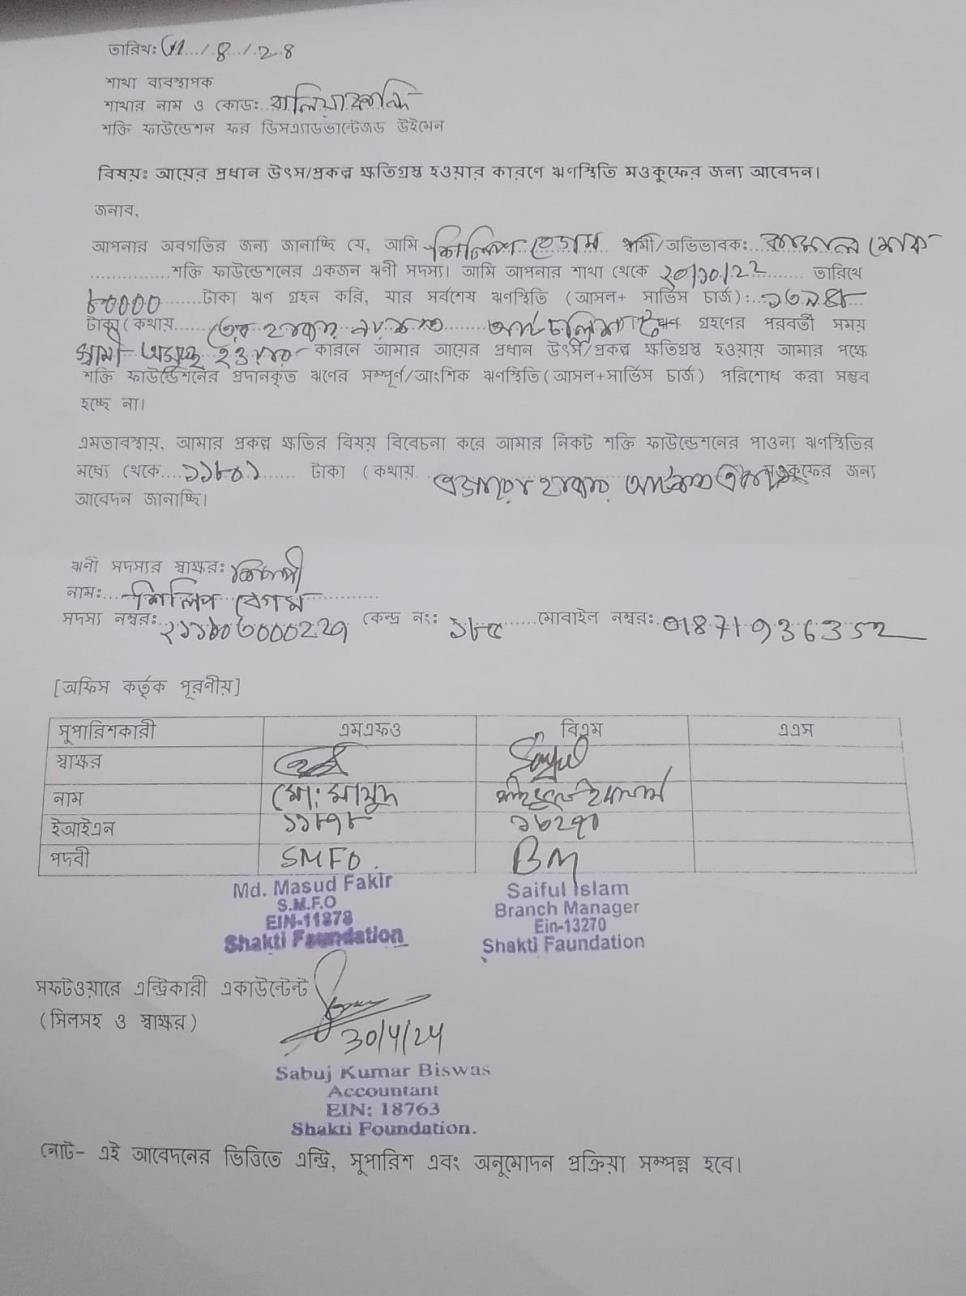 তারিখঃ .../8/28
শাখা ব্যবস্থাপক
শাখার নাম ও কোডঃ বালিয়াকান্দি
শক্তি ফাউন্ডেশন ফর ডিসএ্যাডভান্টেজড উইমেন
বিষয়ঃ আয়ের প্রধান উৎস/প্রকল্প ক্ষতিগ্রস্থ হওয়ার কারণে ঋণস্থিতি মওকুফের জন্য আবেদন।
জনাব,
আপনার অবগতির জন্য জানাচ্ছি যে, আমি শিলিপি বেগম স্বামী/অভিভাবকঃ
শক্তি ফাউন্ডেশনের একজন ঋণী সদস্য। আমি আপনার শাখা থেকে ২০/১০/22 তারিখে
৮০০০০ টাকা ঋণ গ্রহন করি, যার সর্বশেষ ঋণস্থিতি (আসল+ সার্ভিস চার্জ)ঃ ১৩৯৪৮
টাকা (কথায় তের হাজার নয় শত আটচল্লিশ ঋণ গ্রহণের পরবর্তী সময়
স্বামী অসুস্থ হওয়ার কারনে আমার আয়ের প্রধান উৎস/প্রকল্প ক্ষতিগ্রস্থ হওয়ায় আমার পক্ষে
শক্তি ফাউন্ডেশনের প্রদানকৃত ঋণের সম্পূর্ণ/আংশিক ঋণস্থিতি(আসল+সার্ভিস চার্জ) পরিশোধ করা সম্ভব
হচ্ছে না।
এমতাবস্থায়, আমার প্রকল্প ক্ষতির বিষয় বিবেচনা করে আমার নিকট শক্তি ফাউন্ডেশনের পাওনা ঋণস্থিতির
মধ্যে থেকে টাকা (কথায় হাজার আটশত মওকুফের জন্য
আবেদন জানাচ্ছি।
ঋণী সদস্যর স্বাক্ষরঃ
নামঃ শিলিপি বেগম
সদস্য নম্বরঃ কেন্দ্র নংঃ ১৮৫ মোবাইল নম্বরঃ 01871936352
[অফিস কর্তৃক পূরণীয়]
সুপারিশকারী এমএফও বিএম এএস
স্বাক্ষর
নাম মোঃ মাসুদ সাইফুল ইসলাম
ইআইএন ১১৮৭৮ ১৩২৭০
পদবী SMFO. BM
Md. Masud Fakir
S.M.F.O
EIN-11878
Shakti Foundation
Saiful Islam
Branch Manager
Ein-13270
Shakti Faundation
সফটওয়ারে এন্ট্রিকারী একাউন্টেন্ট
(সিলসহ ও স্বাক্ষর)
30/4/24
Sabuj Kumar Biswas
Accountant
EIN: 18763
Shakti Foundation.
নোট- এই আবেদনের ভিত্তিতে এন্ট্রি, সুপারিশ এবং অনুমোদন প্রক্রিয়া সম্পন্ন হবে।